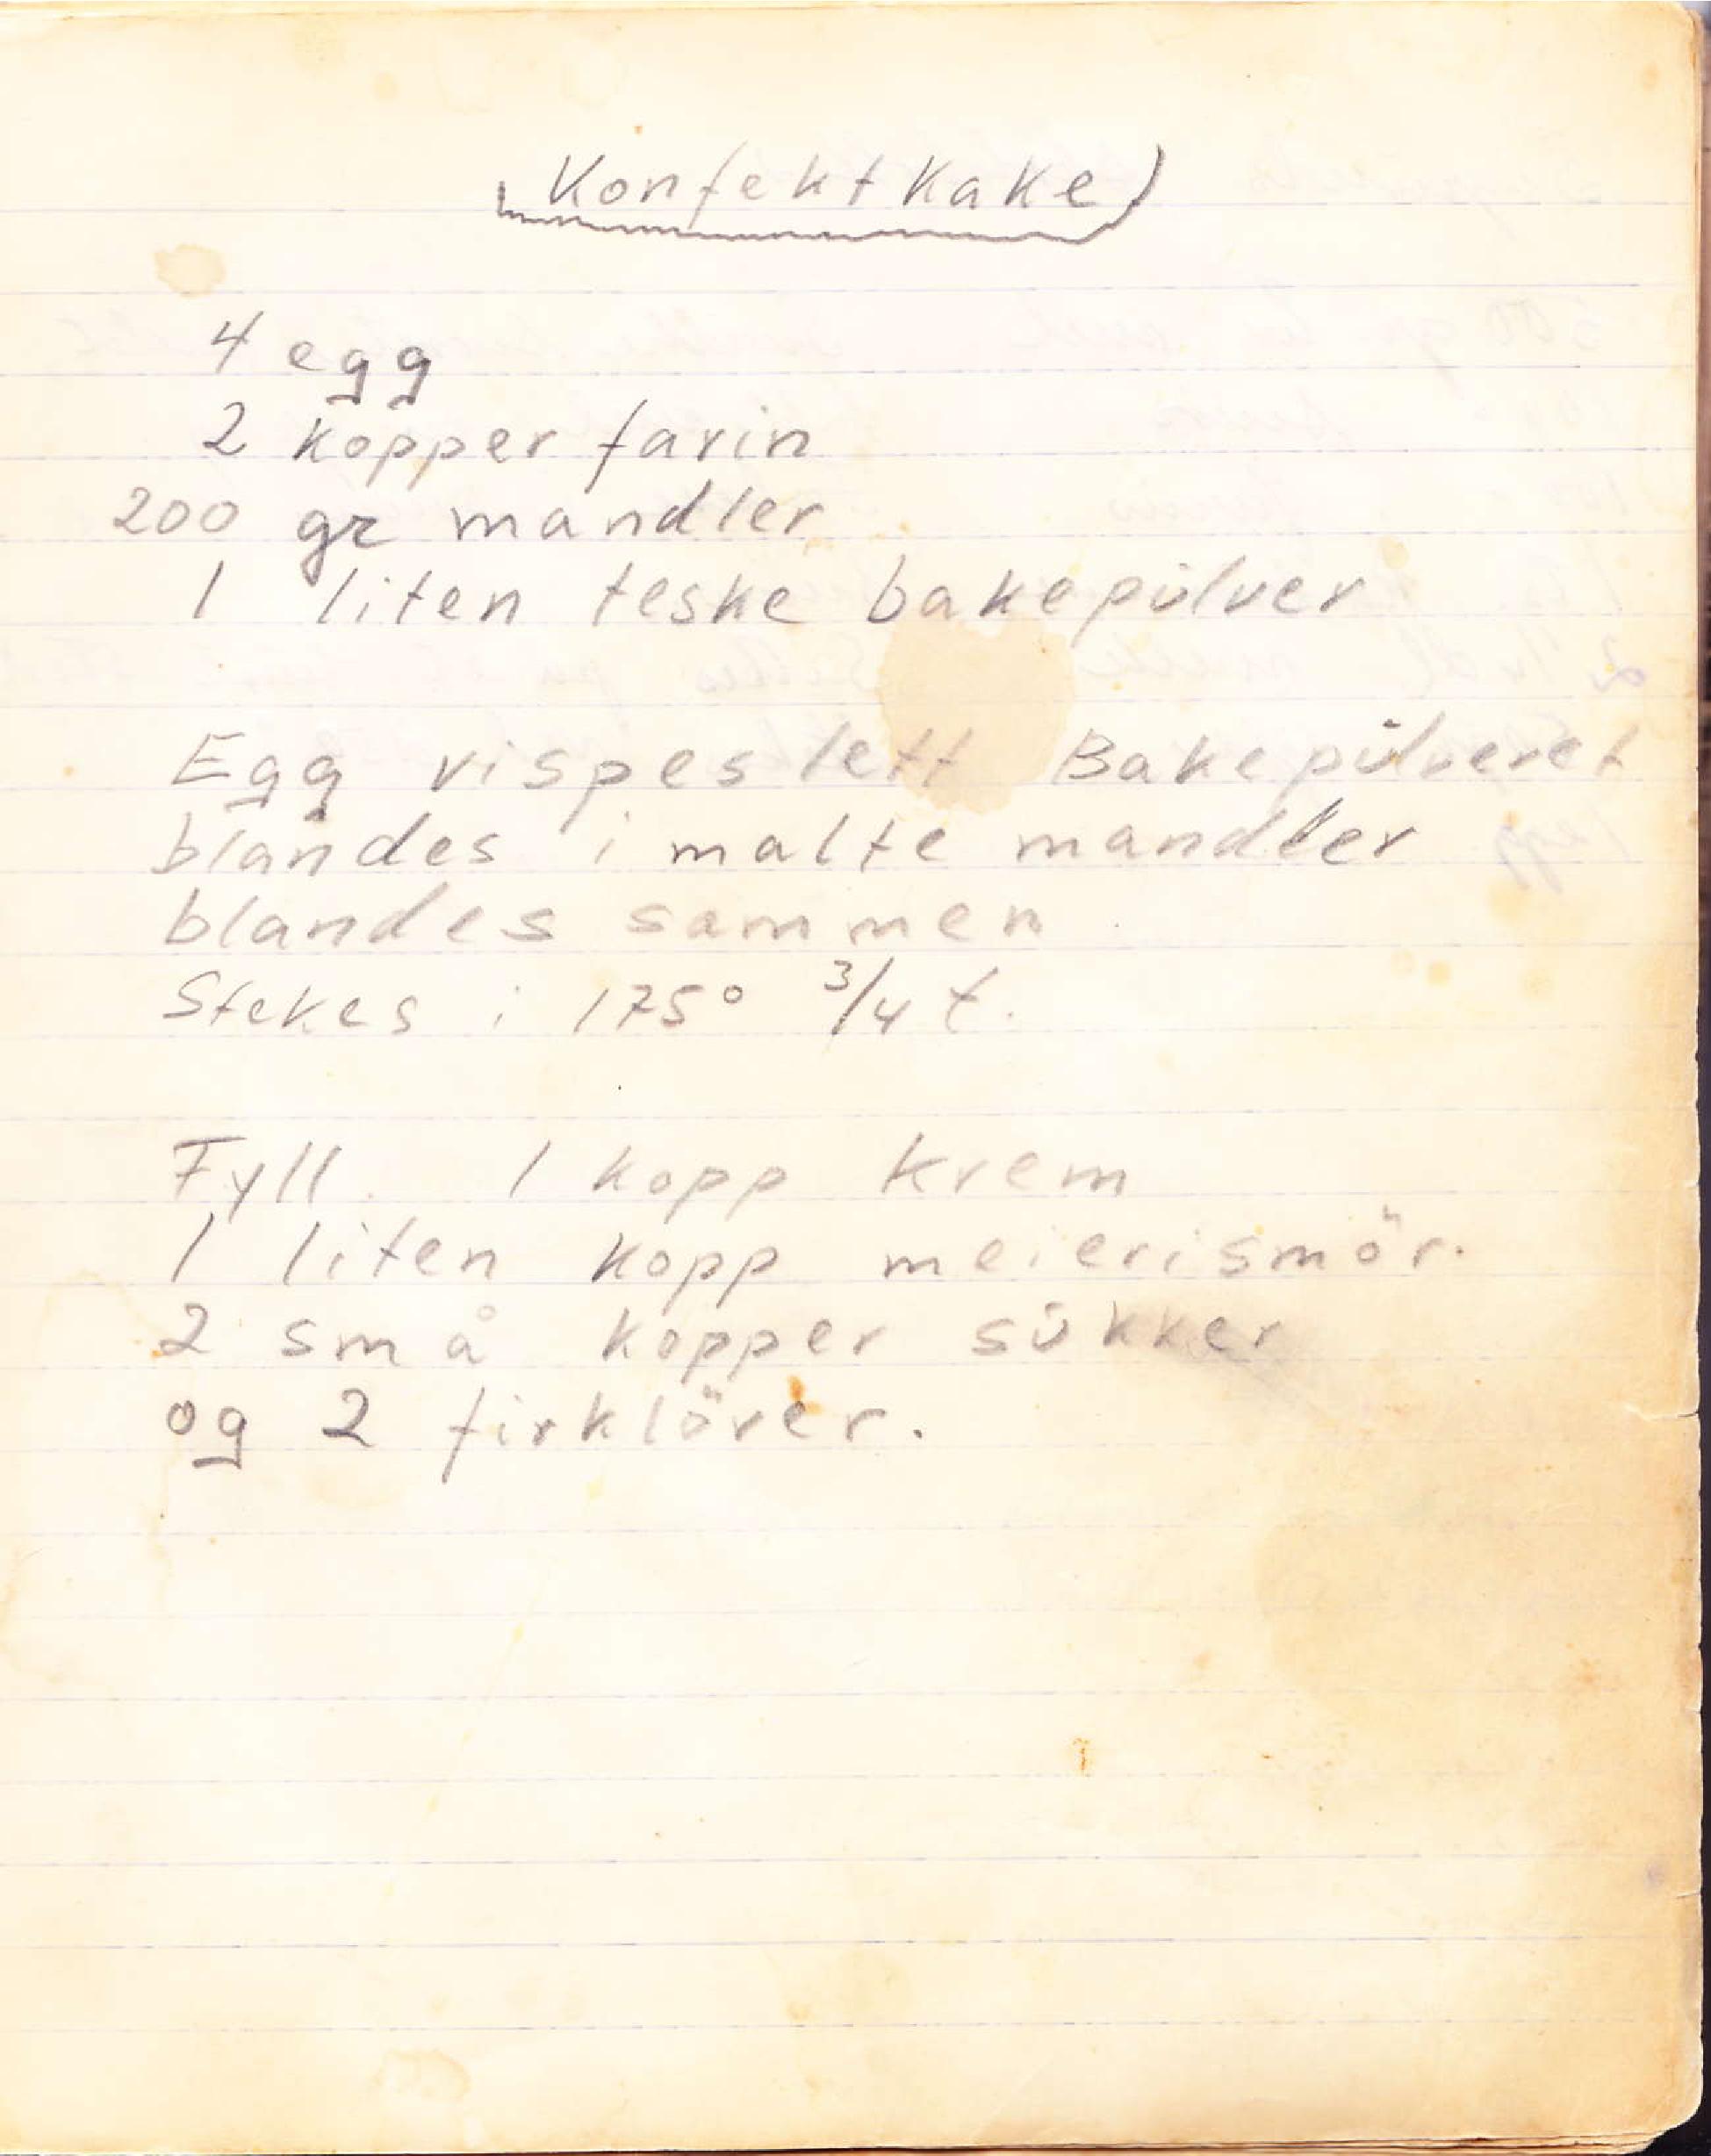 Konfektkake
4 egg
2 kopper farin
200 gr mandler
1 liten teske bakepülver
Egg vispes lett Bakepülveret
blandes i malte mandler
blandes sammen
Stekes i 175° 3/4 t.
Fyll. 1 kopp krem
1 liten kopp meierismör.
2 små kopper sükker
og 2 firklöver.